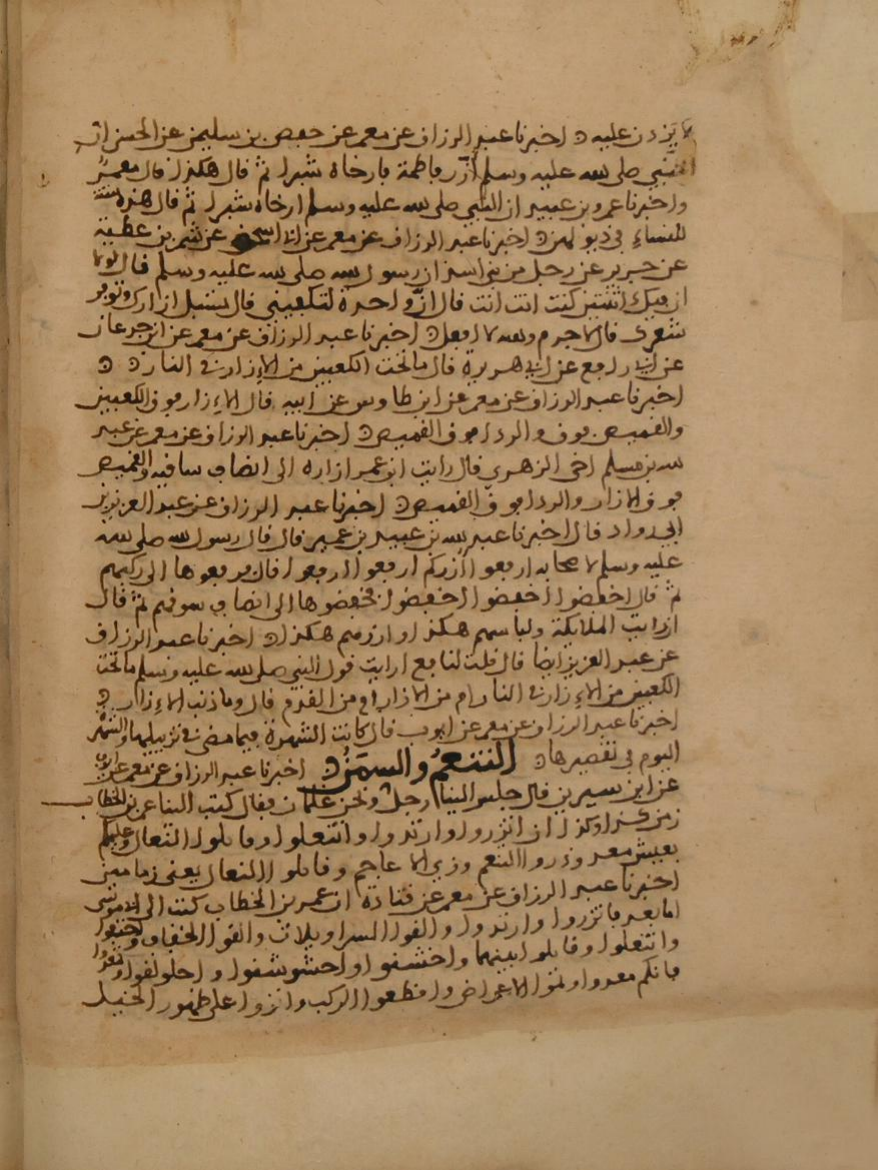 لا يزدن عليه اخبرنا عبد الرزاق عن معمر عن حفص بن سليمن عن الحسن ان
النبي صلى الله عليه وسلم فاطمة فارخاه شبرا ثم قال هكذا قال معمر
واخبرنا عمرو بن عبيد ان النبي صلى الله عليه وسلم ارخاه شبرا ثم قال هذه سنة
للنساء في ذيولهن اخبرنا عبد الرزاق عن معمر عن ابي اسحق عن شمر بن عطية
عن خريم رجل من بني اسد ان رسول الله صلى الله عليه وسلم قال لولا
ان فيك اثنتين كنت انت انت قال ان واحدة لتكفيني قال تسبل ازارك وتوفر
شعرك قال لا جرم والله لا افعل اخبرنا عبد الرزاق عن معمر عن
عن ابي رافع عن ابي هريرة قال ما تحت الكعبين من الازار في النار
اخبرنا عبد الرزاق عن معمر عن ابن طاوس عن ابيه قال الازار فوق الكعبين
والقميص فوق والردا فوق القميص اخبرنا عبد الرزاق عن معمر عن عبد
الله بن مسلم اخي الزهري قال رايت ابن عمر ازاره الى انصاف ساقيه والقميص
فوق الازار والردا فوق القميص اخبرنا عبد الرزاق عن عبد العزيز بن
ابي رواد قال اخبرنا عبد الله بن عبيد بن عمير قال قال رسول الله صلى الله
عليه وسلم لاصحابه ارفعوا ازركم ارفعوا ارفعوا قال فرفعوها الى ركبهم
ثم قال اخفضوا اخفضوا اخفضوا فخفضوها الى انصاف سوقهم ثم قال
اني رايت الملائكة ولباسهم هكذا او ازرهم هكذا اخبرنا عبد الرزاق
عن عبد العزيز ايضا قال قلت لنافع ارايت قول النبي صلى الله عليه وسلم ما تحت
الكعبين من الازار في النار من الازار ام من القدم قال وما ذنب الازار
اخبرنا عبد الرزاق عن معمر عن ايوب قال كانت الشهرة فيما مضى في تذييلها والشهرة
اليوم في تقصيرها التنعم والسمن اخبرنا عبد الرزاق عن معمر عن
عن ابن سيرين قال جلس الينا رجل ونحن غلمان فقال كتب الينا عمر بن الخطاب
زمن كذا وكذا ان اتزروا وارتدوا وانتعلوا وقابلوا النعال وعليكم
بعيش معد وذروا التنعم وزي الاعاجم وقابلوا النعال يعني زمامين
اخبرنا عبد الرزاق عن معمر عن قتادة ان عمر بن الخطاب كتب الى ابي موسى
اما بعد فاتزروا وارتدوا والقوا السراويلات والقوا الخفاف
وانتعلوا وقابلوا بينهما واخشنوا واخشوشنوا واخلولقوا
فانكم معد وارتموا الاغراض واقطعوا الركب وانزوا على ظهور الخيل